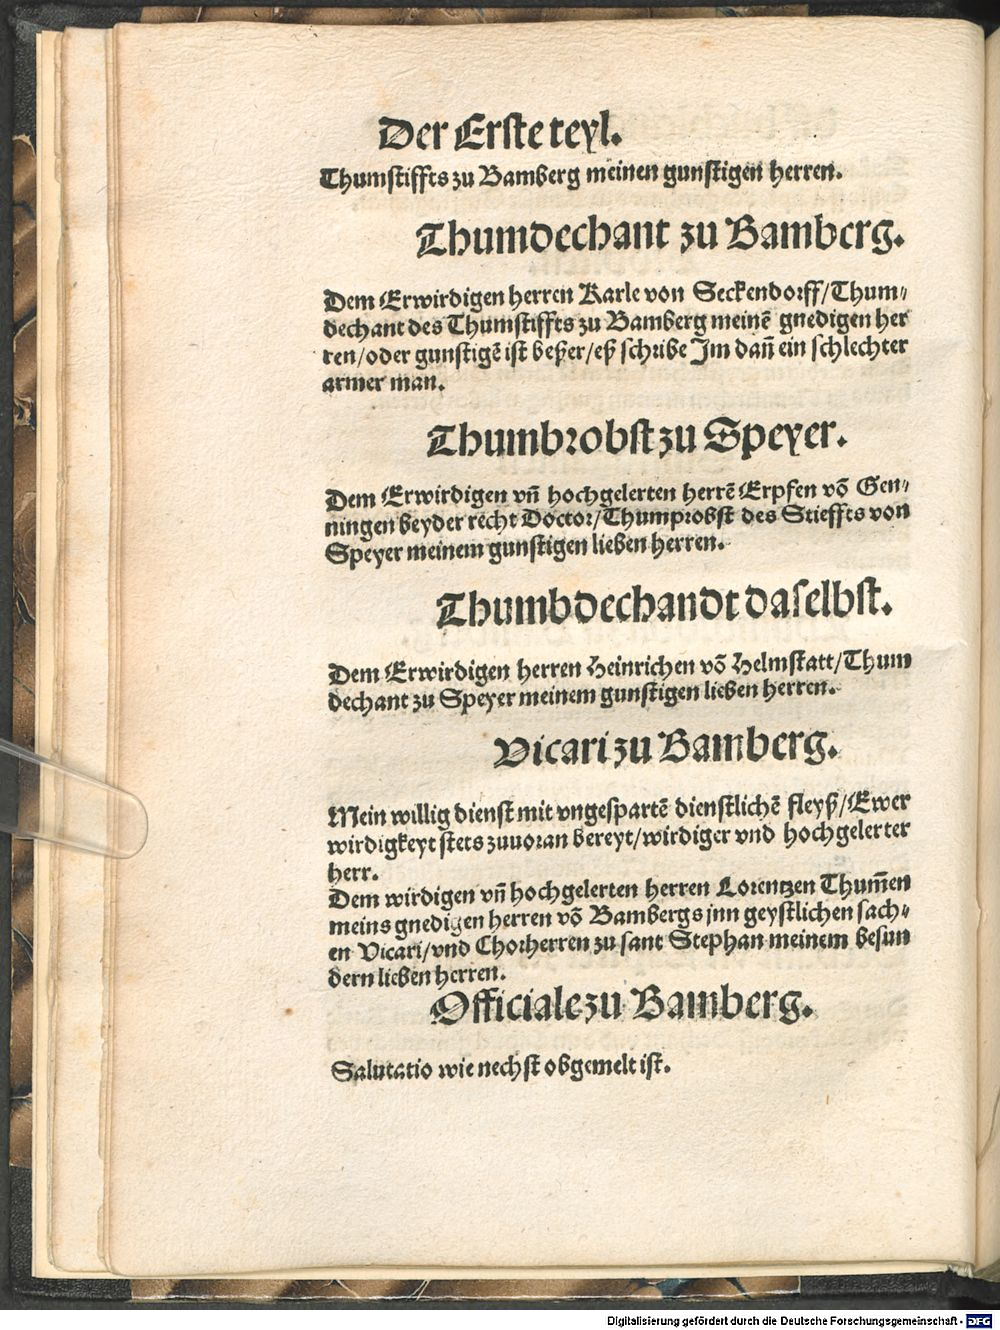 Der Erste teyl.
Thumstiffts zu Bamberg meinen gunstigen herren.
Thumdechant zu Bamberg.
Dem Erwirdigen herren Karle von Seckendorff/Thum-
dechant des Thumstiffts zu Bamberg meinē gnedigen her
ren/oder gunstigē ist beßer/eß schribe Im dañ ein schlechter
armer man.
Thumbrobst zu Speyer.
Dem Erwirdigen vñ hochgelerten herrē Erpfen vō Gen-
ningen beyder recht Doctor/Thumprobst des Stieffts von
Speyer meinem gunstigen lieben herren.
Thumbdechandt daselbst.
Dem Erwirdigen herren Heinrichen vō Helmstatt/Thum
dechant zu Speyer meinem gunstigen lieben herren.
Vicari zu Bamberg.
Mein willig dienst mit vngespartē dienstlichē fleyß/Ewer
wirdigkeyt stets zuuoran bereyt/wirdiger vnd hochgelerter
herr.
Dem wirdigen vñ hochgelerten herren Lorentzen Thum̄en
meins gnedigen herren vō Bambergs jnn geystlichen sach-
en Vicari/vnd Chorherren zu sant Stephan meinem besun
dern lieben herren.
Officiale zu Bamberg.
Salutatio wie nechst obgemelt ist.
Digitalisierung gefördert durch die Deutsche Forschungsgemeinschaft - DFG